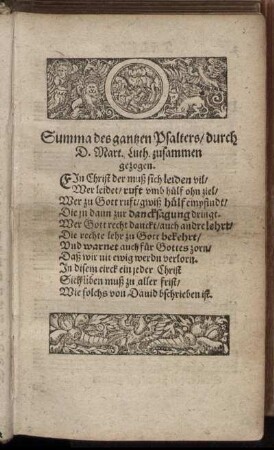 Summa des gantzen Psalters/durch
D. Mart. Luth. zusammen
gezogen.
EIn Christ der muß sich leiden vil/
Wer leidet/ rufft vmb hülf ohn ziel/
Wer zu Gott ruft/gwiß hülf empfindt/
Die jn dann zur dancksagung dringt.
Wer Gott recht danckt/auch andre lehrt/
Die rechte lehr zu Gott bekehrt/
Vnd warnet auch für Gottes zorn/
Daß wir nit ewig werdn verlorn.
In disem circk ein jeder Christ
Sich üben muß zu aller frist/
Wie solchs von Dauid bschrieben ist.